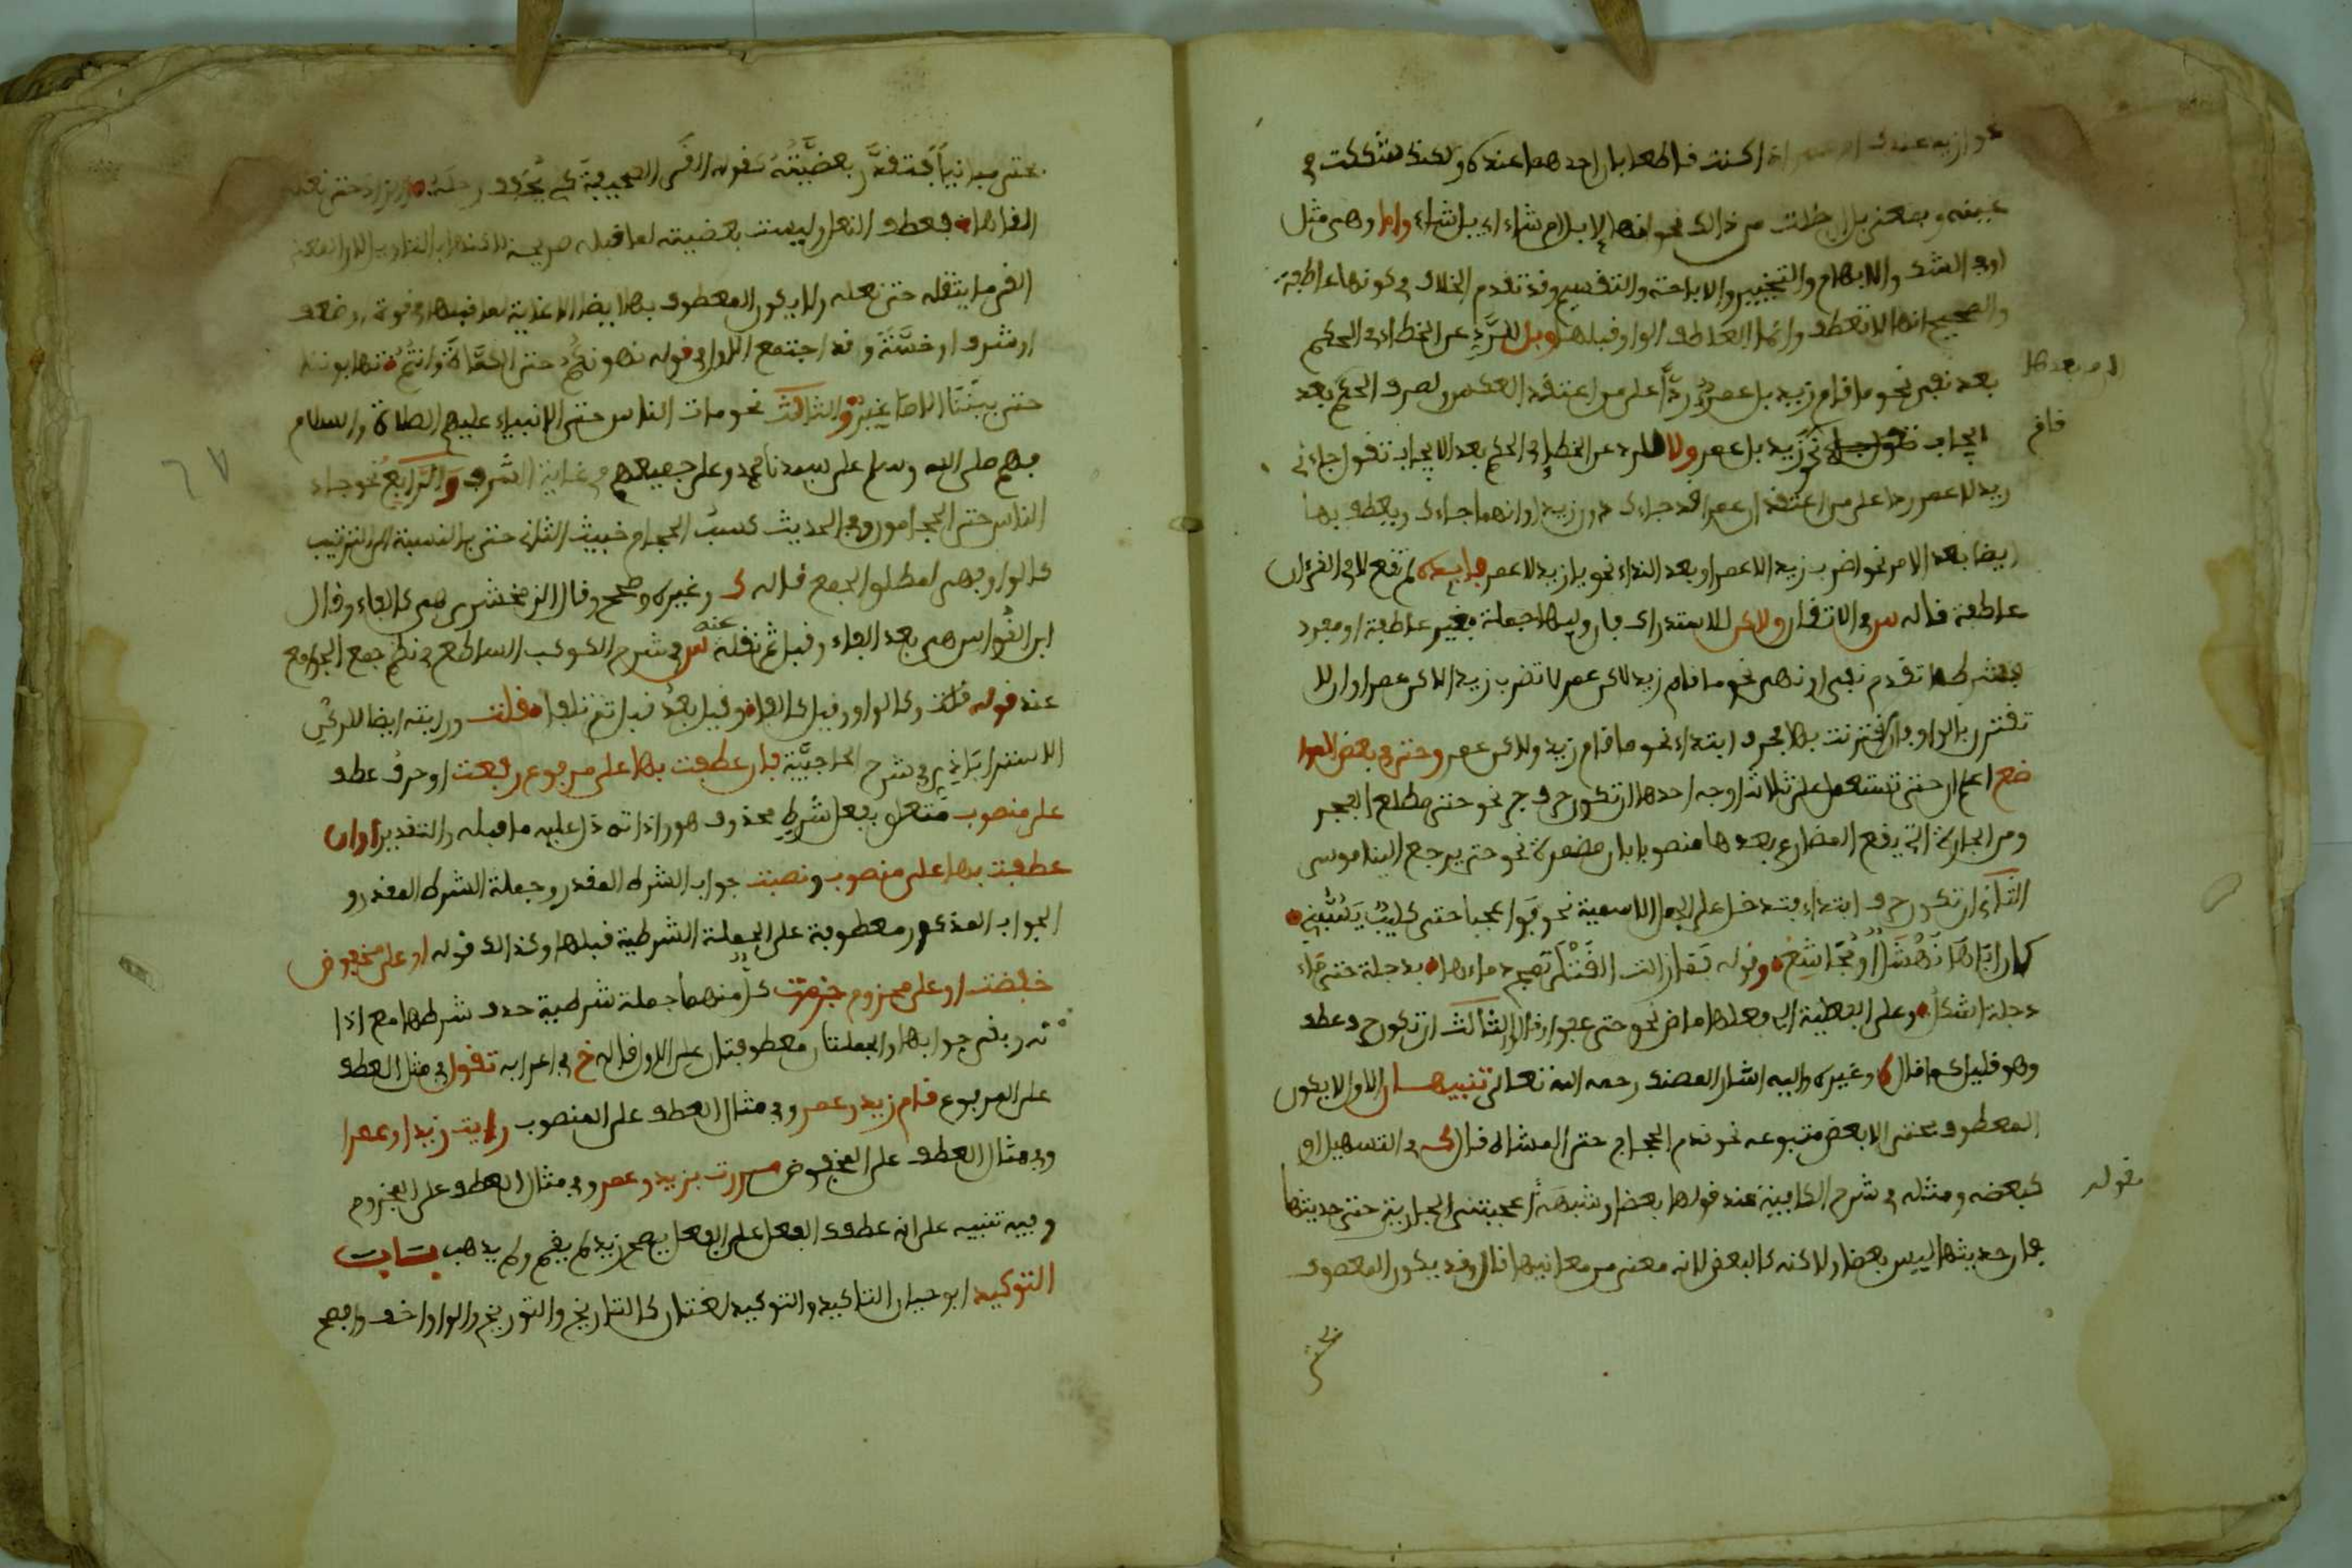 نحو ازيد عندك ام عمر اذا كنت قاطعا بان احدهما عنده ولكنك شككت في
عينه وبمعنى بل ان خلت من ذالك نحو انها لابل ام شاء اي بل شاء واما وهي مثل
او في الشك والابهام والتخيير والاباحة والتقسيم وقد تقدم الخلاف في كونها عاطفة
والصحيح انها لا تعطف وانما العاطف الواو قبلها وبل للرد عن الخطا في الحكم
بعد نفي نحو ما قام زيد بل عمر ردا على من اعتقد العكس ولصرف الحكم بعد
ايجاب نحو زيد بل عمر ولا للرد عن الخطا في الحكم بعد الايجاب تقول جاءني
زيد لا عمر ردا على من اعتقد ان عمرا قد جاءك دون زيد او انهما جاءاك ويعطف بها
ايضا بعد الامر نحو اضرب زيدا لا عمرا وبعد النداء نحو يا زيد لا عمر فايدة لم تقع لا في القرءان
عاطفة قاله س في الاتقان ولاكن للاستدراك فان وليها جملة فغير عاطفة او مفرد
فبشرط تقدم نفي او نهي نحو ما قام زيد لاكن عمر لا تضرب زيدا لاكن عمرا وان لا
تقترن بالواو فان اقترنت بها فحرف ابتداء نحو ما قام زيد ولاكن عمر وحتى في بعض الموا
ضع اعلم ان حتى تستعمل على ثلاثة اوجه احدها ان تكون حرف جر نحو حتى مطلع الفجر
ومن الجارة التي يقع المضارع بعدها منصوبا بان مضمرة نحو حتى يرجع الينا موسى
الثاني ان تكون حرف ابتداء فتدخل على الجمل الاسمية نحو فوا عجبا حتى كليب يسبني
كان اباها نهشل او مجاشع وقوله فما زالت القتلى تمج دماءها بدجلة حتى ماء
دجلة اشكل وعلى الفعلية التي فعلها ماض نحو حتى عفوا وقالوا الثالث ان تكون حرف عطف
وهو قليل كما قال وغيره واليه اشار المصنف رحمه الله تعالى تنبيهان الاول لا يكون
المعطوف بحتى الا بعض متبوعه نحو قدم الحجاج حتى المشاة قال ك في التسهيل او
كبعضه ومثله في شرح الكافية عند قولها بعضا او شبهه اعجبتني الجارية حتى حديثها
فان حديثها ليس بعضا ولاكنه كالبعض لانه معنى من معانيها قال وقد يكون المعطوف
لا بعدها
قام
بقوله
بحتى مباينا فتقدر بعضيته كقوله القى الصحيفة كي يخفف رحله والزاد حتى نعله
القاها فعطف النعل وليست بعضيته لما قبله صريحة لاكنها بالتاويل لان المعنى
القى ما يثقله حتى نعله ولا يكون المعطوف بها ايضا الا غاية لما قبلها في قوة او ضعف
او شرف او خسة وقد اجتمع الاول في قوله قهرناكم حتى الكماة فانتم تهابوننا
حتى بنينا الاصاغر والثالث نحو مات الناس حتى الانبياء عليهم الصلاة والسلام
فهم صلى الله وسلم على سيدنا محمد وعلى جميعهم في غاية الشرف والرابع نحو جاء
الناس حتى الحجامون وفي الحديث كسب الحجام خبيث الثاني حتى بالنسبة الى الترتيب
كالواو فهي لمطلق الجمع قاله ك وغيره وصحح وقال الزمخشري هي كالفاء وقال
ابن القواس هي بعد الفاء وقبل ثم نقله عنه س في شرح الكوكب الساطع في نظم جمع الجوامع
عند قوله قلت وكالواو وقيل كالفا وقيل بعد قبل ثم تلفا قلت ورايته ايضا للركن
الاستراباذي في شرح الحاجبية فان عطفت بها على مرفوع رفعت او حرف عطف
على منصوب متعلق بفعل شرط محذوف هو واداته دل عليه ما قبله والتقدير او ان
عطفت بها على منصوب ونصبت جواب الشرط المقدر وجملة الشرط المقدر و
الجواب المذكور معطوفة على الجملة الشرطية قبلها وكذالك قوله او على مخفوض
خفضت او على مجزوم جزمت كل منهما جملة شرطية حذف شرطها مع اذا
ته وبقي جوابها والجملتان معطوفتان على الاول قاله خ في اعرابه تقول في مثل العطف
على المرفوع قام زيد وعمر وفي مثال العطف على المنصوب رايت زيدا وعمرا
وفي مثال العطف على المخفوض مررت بزيد وعمر وفي مثال العطف على المجزوم
وفيه تنبيه على انه عطف الفعل على الفعل يصح زيد لم يقم ولم يذهب باب
التوكيد ابو حيان التاكيد والتوكيد لغتان كالتاريخ والتوريخ والواو اخف وافصح
٦٧